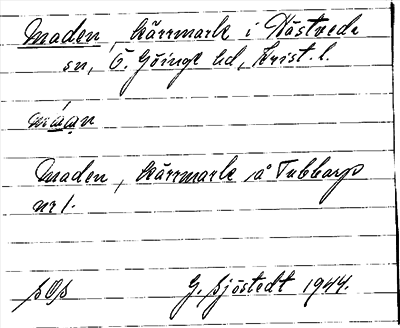 Maden, kärrmark i Hästveda
sn, Ö. Göinge hd, Krist. l.
Maden, kärrmark å Tubbarp
nr 1.
sOs G. Sjöstedt 1944.